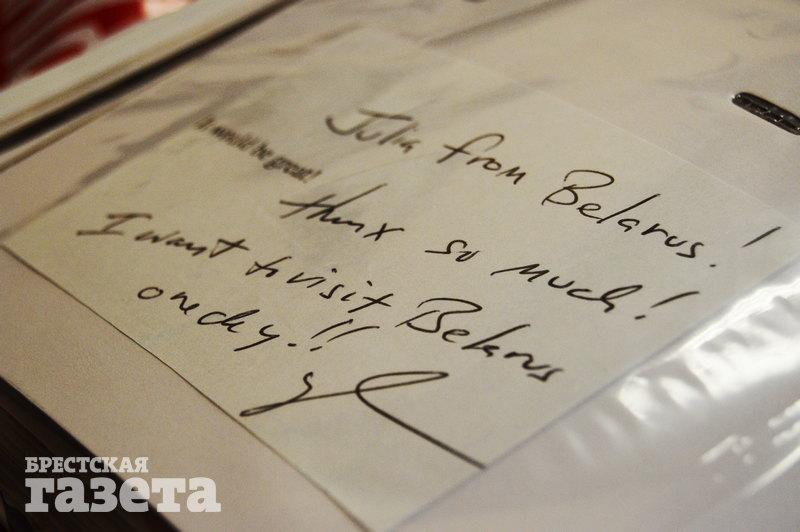 Julia from Belarus!
It would be great!
thnx so much!
I want to visit Belarus
one day!!
БРЕСТСКАЯ
газета